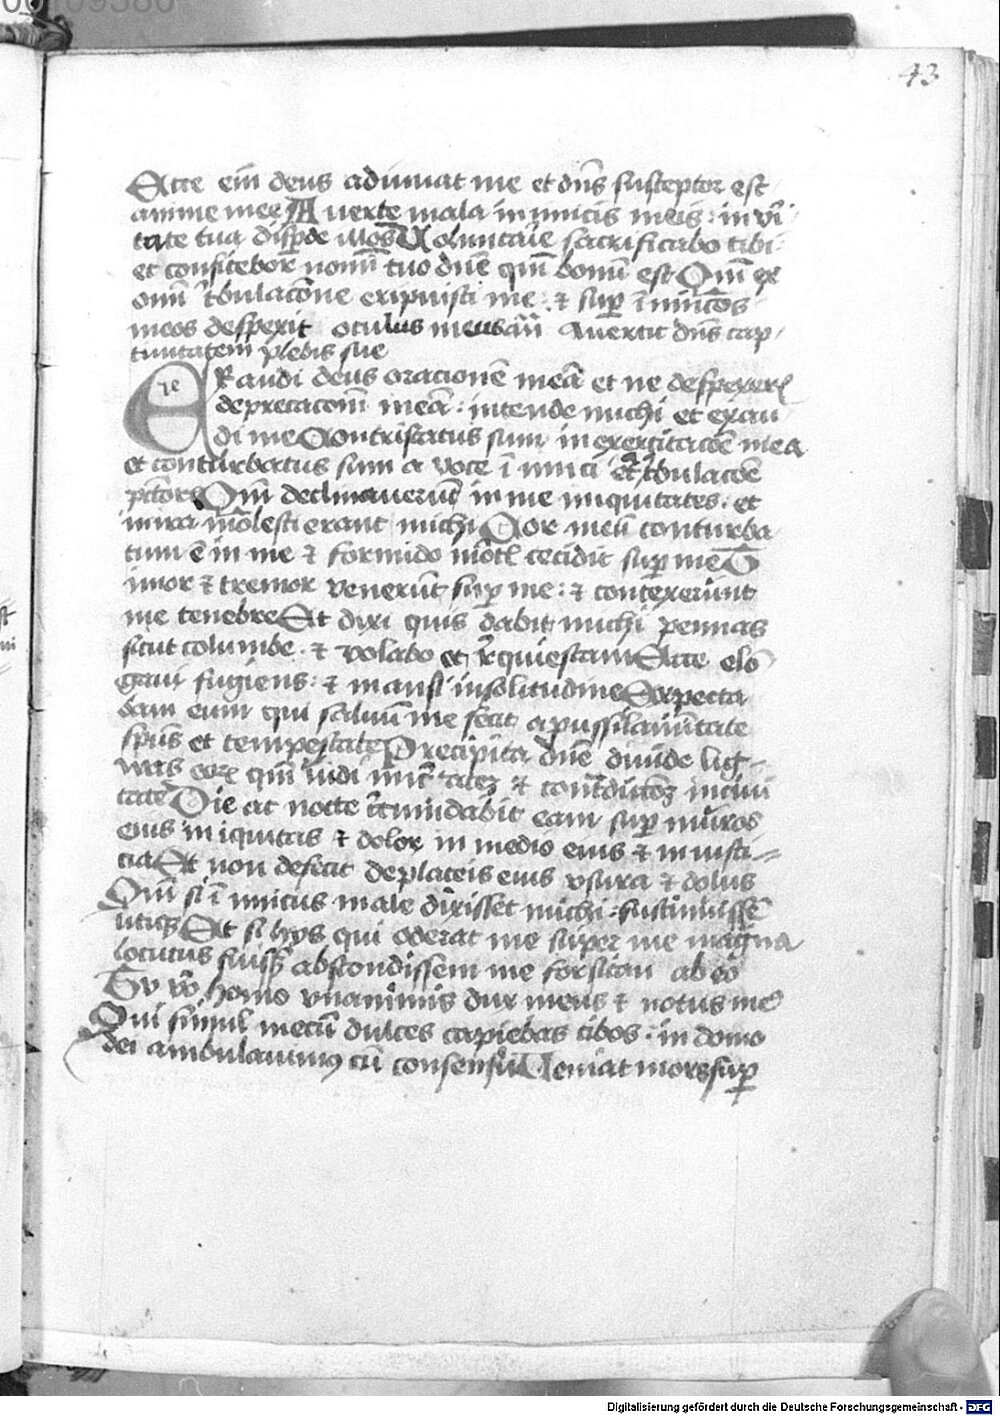 43
Ecce eiñ deus adiuuat me et dñs susceptor est
anime mee Auerte mala inimicis meis : in vĩ
tate tua disp̱de illos Uoluntarie sacrificabo tibi
et confitebor nomĩ tuo dñe qm̃ bonũ est Qm̃ ex
omĩ t̃bulacõne eripuisti me : ⁊ sup̱ inimicos
meos despexit oculus meus añ Auertit dñs cap
tiuitatem plebis sue
Exaudi deus oracionẽ meã et ne despexeris
deprecacõm meã : intende michi et exau
di me Contristatus sum in exercitacõe mea
et conturbatus sum a voce inimici et t̃bulacõe
pctõris Qm̃ declinauerũt in me iniquitates : et
in ira molesti erant michi Cor meũ conturba
tum ẽ in me ⁊ formido mort̃ cecidit sup̱ me T
imor ⁊ tremor venerũt sup̱ me : ⁊ contexerũnt
me tenebre Et dixi quis dabit michi pennas
sicut columbe . ⁊ volabo et r̃quiescam Ecce elõ
gaui fugiens : ⁊ mansi in solitudine Expecta
bam eum qui saluũ me fecit a pussilanimitate
sp̃us et tempestate Precipita dñe diuide lig
was eor̃ qm̃ vidi iniq̃tatẽ ⁊ cont̃dictõẽ in ciui
tate Die ac nocte c̃cũmdabit eam sup̱ muros
eius iniquitas ⁊ dolor in medio eius ⁊ iniusti
cia Et non defecit de plateis eius vsura ⁊ dolus
Qm̃ si inimicus male dixisset michi : sustinuissẽ
utiq₃ Et si hys qui oderat me super me magna
locutus fuiss₃ abscondissem me forsitan ab eo
Tu võ homo vnanimis dux meus ⁊ notus me⁹
Qui simul mecũ dulces capiebas cibos : in domo
dei ambulauim⁹ cũ consensu Ueniat mors sup̱
Digitalisierung gefördert durch die Deutsche Forschungsgemeinschaft - DFG